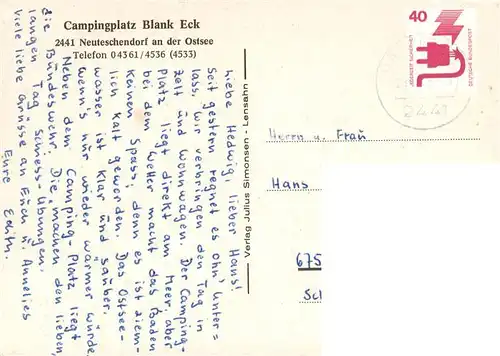 Campingplatz Blank Eck
2441 Neuteschendorf an der Ostsee
Telefon 04361/4536 (4533)
Liebe Hedwig, lieber Hans!
Seit gestern regnet es ohn' Unter=
lass, wir verbringen den Tag in
Zelt und Wohnwagen. Der Camping-
Platz liegt direkt am Meer, aber
bei dem Wetter macht das Baden
keinen Spass, denn es ist ziem-
lich kalt geworden. Das Ostsee-
wasser ist klar und sauber,
wenn's nur wieder wärmer würde.
Neben dem Camping-Platz liegt
die Bundeswehr. Die machen den lieben,
langen Tag Schiess-Übungen.
Viele liebe Grüsse an Euch u. Annelies
Eure Edith.
Verlag Julius Simonsen - Lensahn
40
JEDERZEIT SICHERHEIT
DEUTSCHE BUNDESPOST
2441
Herrn u. Frau
Hans
675
Sch